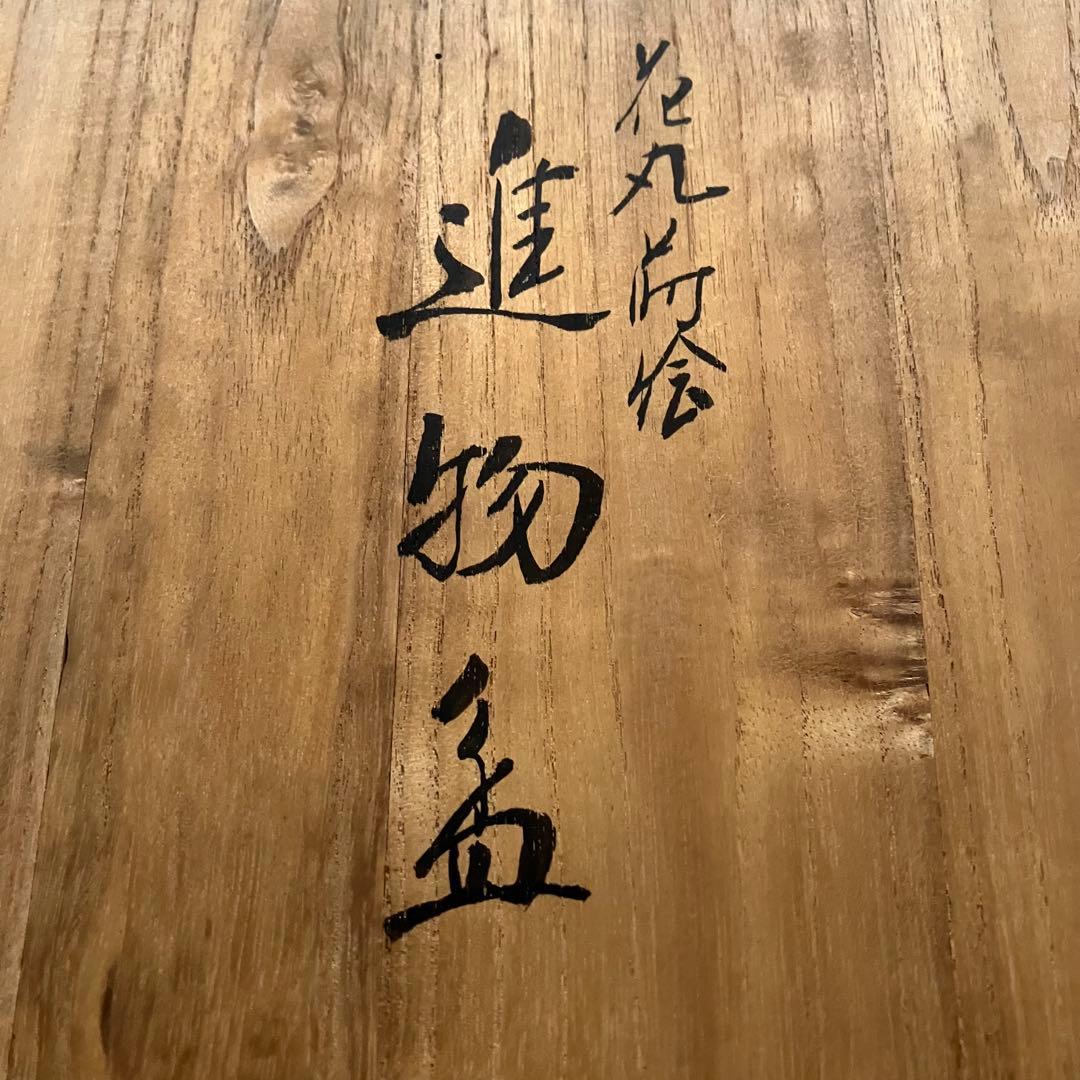 花丸蒔絵
進物盆